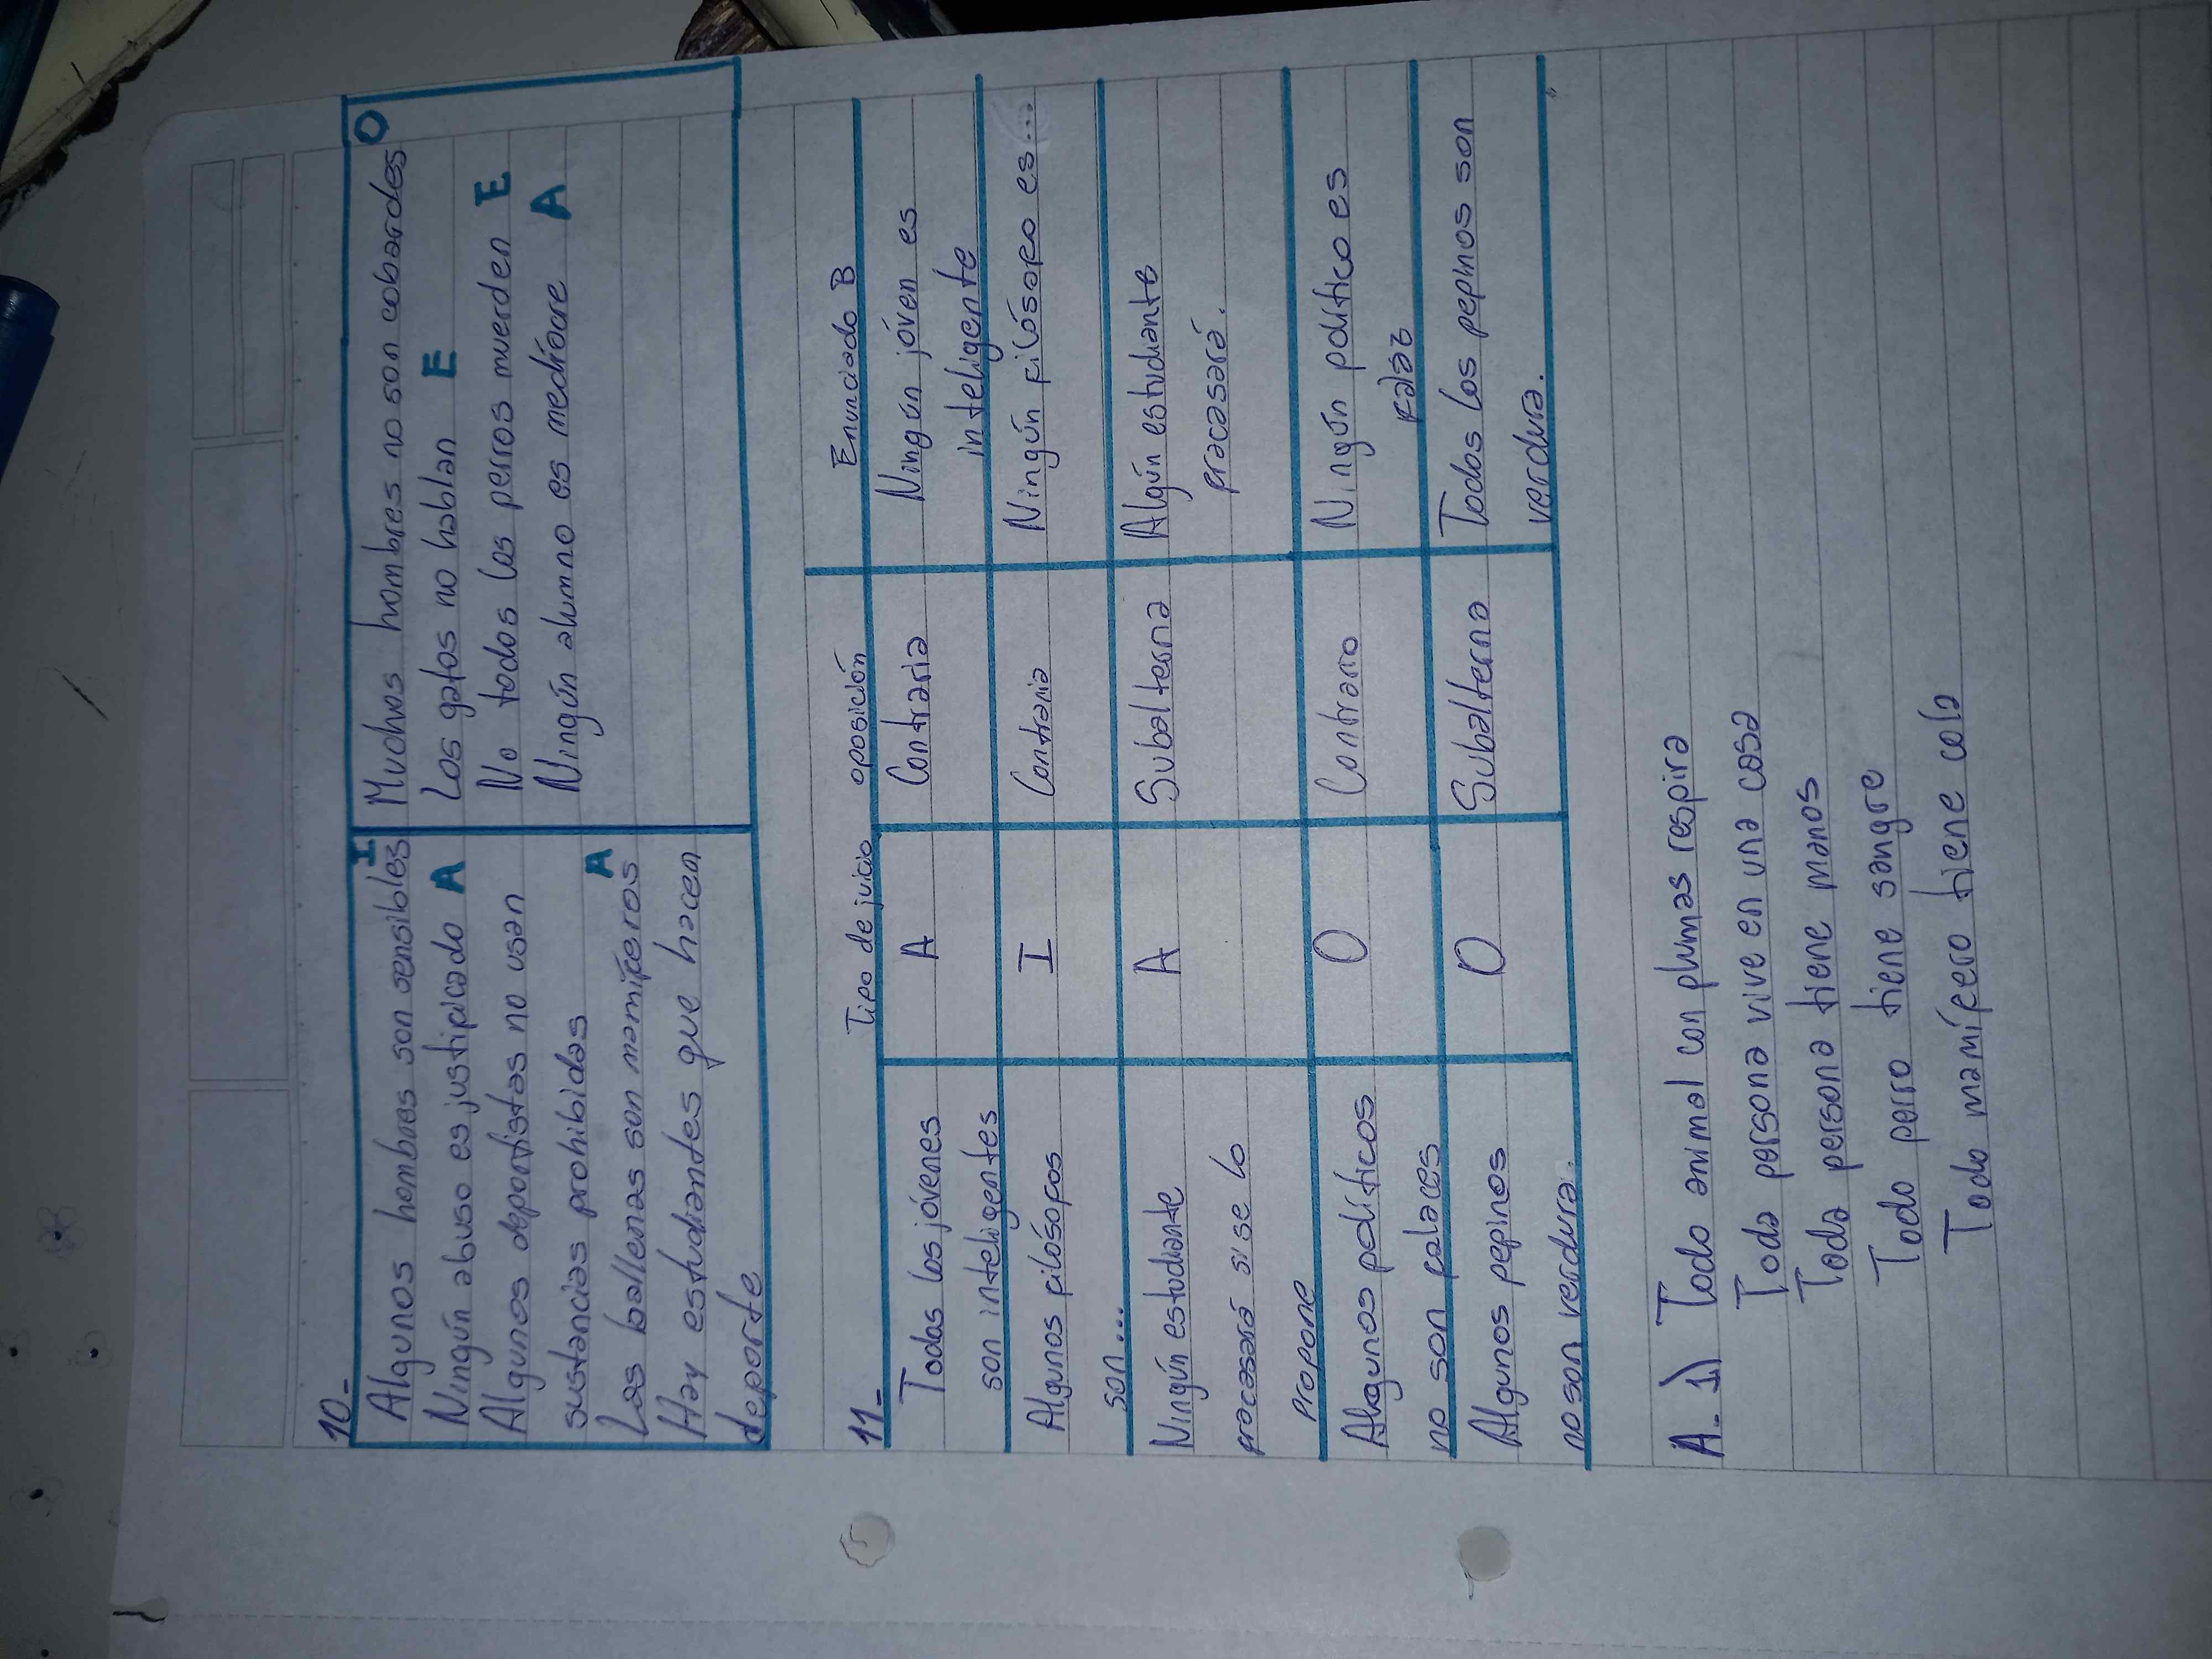 10-
Algunos hombres son sensibles I
Ningún abuso es justificado A
Algunos deportistas no usan
sustancias prohibidas
Las ballenas son mamíferos A
Hay estudiantes que hacen
deporte
Muchos hombres no son cobardes O
Los gatos no hablan E
No todos los perros muerden E
Ningún alumno es mediocre A
11-
Tipo de juicio oposición Enunciado B
Todos los jóvenes A Contraria Ningún jóven es
son inteligentes inteligente
Algunos filósofos I Contraria Ningún filósofo es...
son...
Ningún estudiante A Subalterna Algún estudiante
fracasará si se lo fracasará.
Propone
Algunos políticos O Contrario Ningún político es
no son falaces falaz
Algunos pepinos O Subalterna Todos los pepinos son
no son verdura. verdura.
A. 1) Todo animal con plumas respira
Toda persona vive en una casa
Toda persona tiene manos
Todo perro tiene sangre
Todo mamífero tiene cola